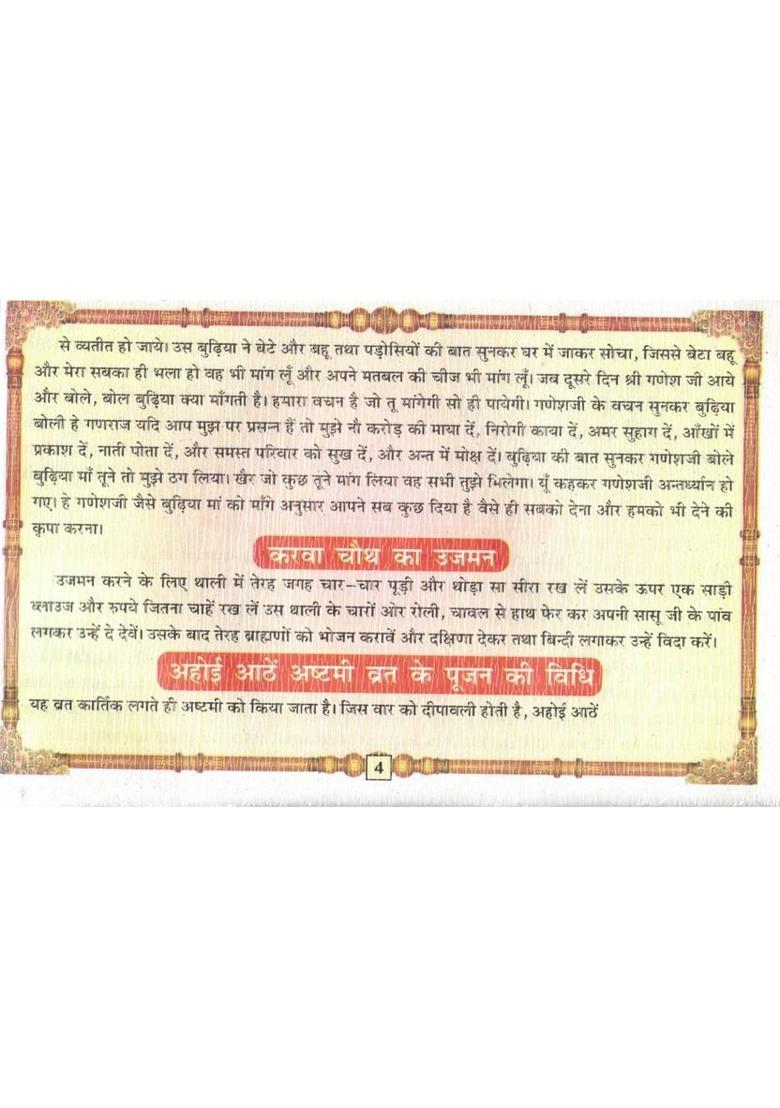 से व्यतीत हो जाये। उस बुढ़िया ने बेटे और बहू तथा पड़ोसियों की बात सुनकर घर में जाकर सोचा, जिससे बेटा बहू
और मेरा सबका ही भला हो वह भी मांग लूँ और अपने मतबल की चीज भी मांग लूँ। जब दूसरे दिन श्री गणेश जी आये
और बोले, बोल बुढ़िया क्या माँगती है। हमारा वचन है जो तू मांगेगी सो ही पायेगी। गणेशजी के वचन सुनकर बुढ़िया
बोली हे गणराज यदि आप मुझ पर प्रसन्न हैं तो मुझे नौ करोड़ की माया दें, निरोगी काया दें, अमर सुहाग दें, आँखों में
प्रकाश दें, नाती पोता दें, और समस्त परिवार को सुख दें, और अन्त में मोक्ष दें। बुढ़िया की बात सुनकर गणेशजी बोले
बुढ़िया माँ तूने तो मुझे ठग लिया। खैर जो कुछ तूने मांग लिया वह सभी तुझे मिलेगा। यूँ कहकर गणेशजी अन्तर्ध्यान हो
गए। हे गणेशजी जैसे बुढ़िया मां को माँगे अनुसार आपने सब कुछ दिया है वैसे ही सबको देना और हमको भी देने की
कृपा करना।
करवा चौथ का उजमन
उजमन करने के लिए थाली में तेरह जगह चार-चार पूड़ी और थोड़ा सा सीरा रख लें उसके ऊपर एक साड़ी
ब्लाउज और रुपये जितना चाहें रख लें उस थाली के चारों ओर रोली, चावल से हाथ फेर कर अपनी सासू जी के पांव
लगकर उन्हें दे देवें। उसके बाद तेरह ब्राह्मणों को भोजन करावें और दक्षिणा देकर तथा बिन्दी लगाकर उन्हें विदा करें।
अहोई आठें अष्टमी व्रत के पूजन की विधि
यह व्रत कार्तिक लगते ही अष्टमी को किया जाता है। जिस वार को दीपावली होती है, अहोई आठें
4